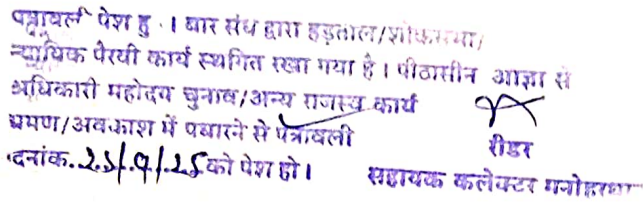 पत्रावली पेश हुई। बार संघ द्वारा हड़ताल/शोकसभा/
न्यायिक पैरवी कार्य स्थगित रखा गया है। पीठासीन आज्ञा से
अधिकारी महोदय चुनाव/अन्य राजस्व कार्य
भ्रमण/अवकाश में पधारने से पत्रावली
रीडर
दिनांक. को पेश हो।
सहायक कलेक्टर मनोहरथाना